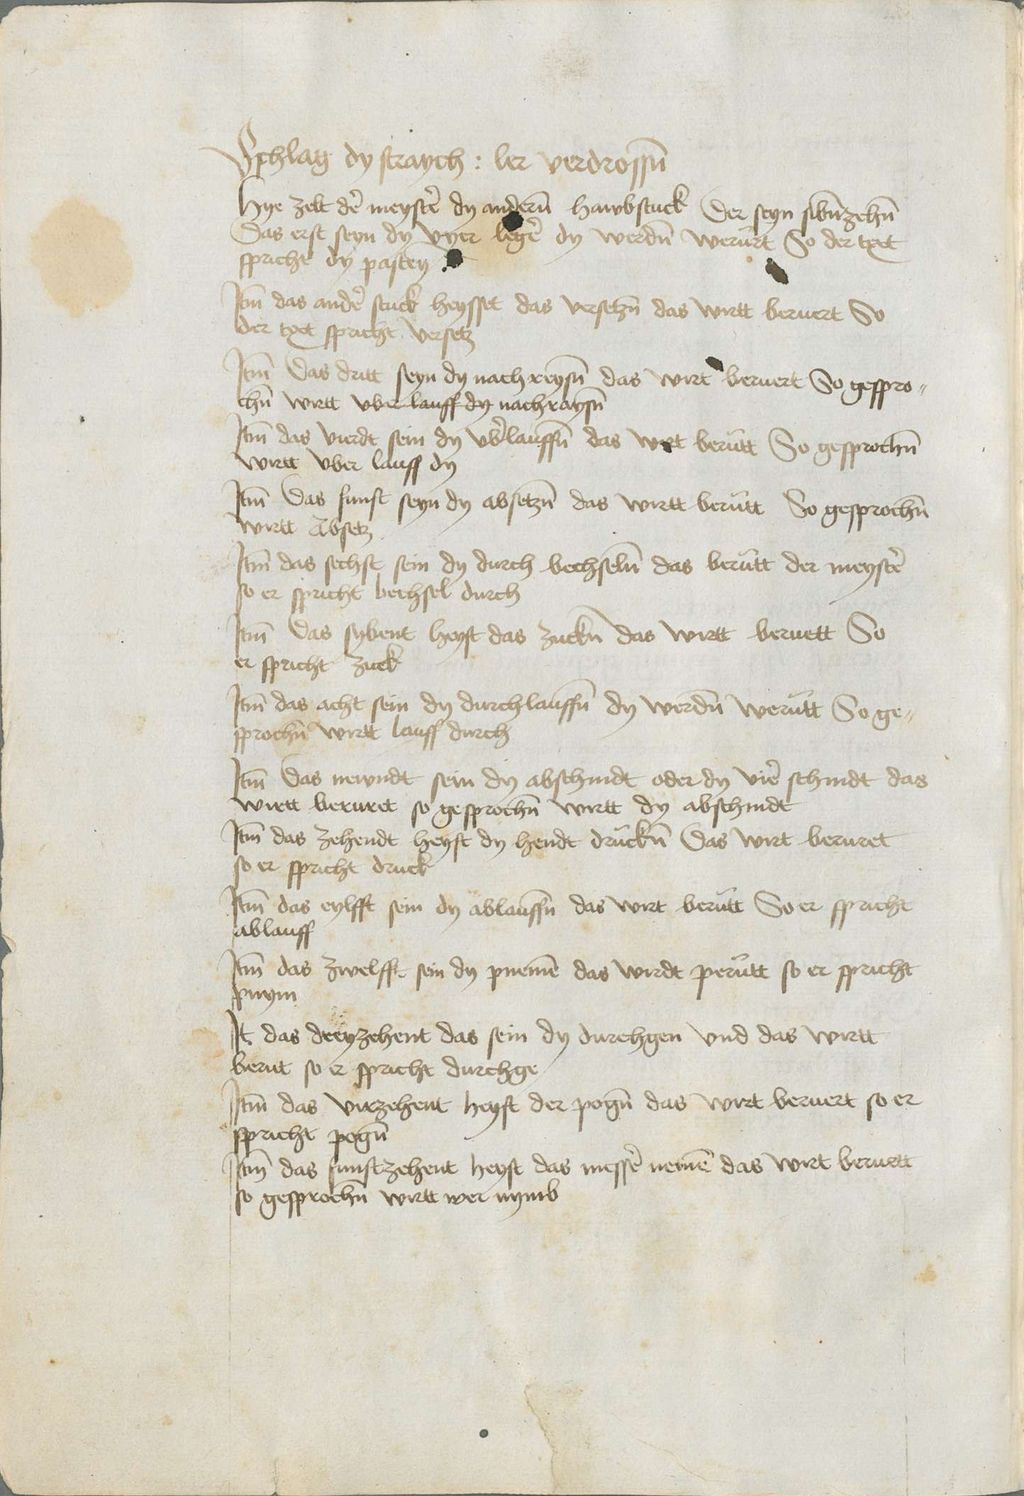 Schlag dy straych : ler verdrossn̄
Hye zelt dē meystē dy andern̄ hawbstuck Der seyn sibn̄zehn̄
Das erst seyn dy vyer legē dy werdn̄ werürt So der text
spricht dy pastey
Itm̄ das andē stuck heysset das versetzn̄ das wirtt beruert So
der text spricht versetz
Itm̄ Das dritt seyn dy nachreysn̄ das wirt beruert So gespro„
chn̄ wirtt vber lauff dy nachraysn̄
Itm̄ das vierdt sein dy vb̄lauffn̄ das wirt berütt So gesprochn̄
wirtt vber lauff dy
Itm̄ Das funft seyn dy absetzn̄ das wirtt berütt So gesprochn̄
wirtt Absetz
Itm̄ das sechst sein dy durch bechseln̄ das berütt der meystē
so er spricht bechsel durch
Itm̄ Das sybent heyst das zuckn̄ das wirtt beruett So
er spricht zuck
Itm̄ das acht sein dy durchlauffn̄ dy werdn̄ werütt So ge„
sprochn̄ wirtt lauff durch
Itm̄ Das newndt sein dy abschnidt oder dy viē schnidt das
wirtt beruret so gesprochn̄ wirtt dy abschnidt
Itm̄ das zehendt heyst dy hendt drückn̄ Das wirt beruret
so er spricht druck
Itm̄ das eylfft sein dy ablauffn̄ das wirt berütt So er spricht
ablauff
Itm̄ das zwelfft sein dy pnemē das wirdt perütt so er spricht
pnym
It das dreyzehent das sein dy durchgen vnd das wirtt
berut so er spricht durchge
Itm̄ das virzehent heyst der pogn̄ das wirt beruert so er
spricht pogn̄
Itm̄ das funftzehent heyst das messē nemē das wirt beruett
so gesprochn̄ wirtt wer nymb